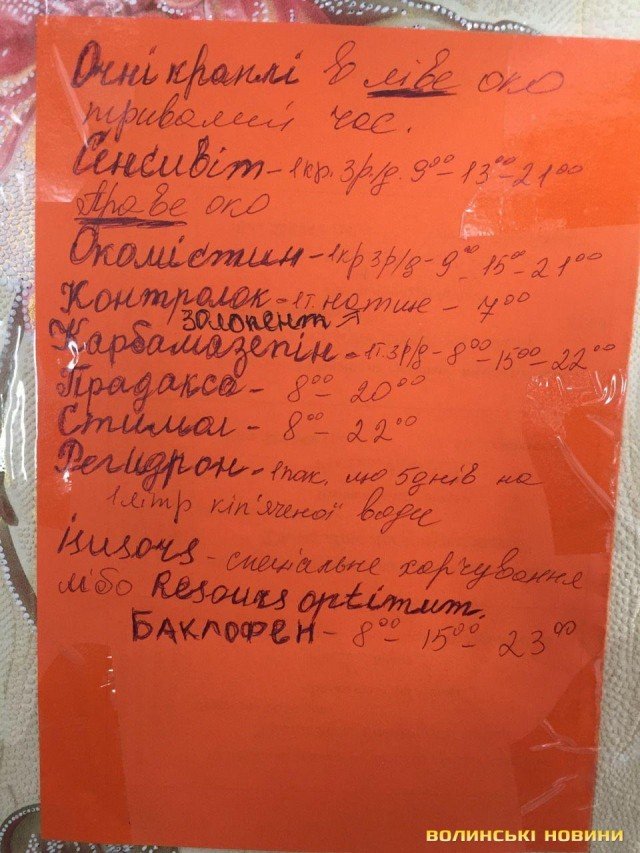 Очні краплі в ліве око
тривалий час.
Сенсивіт - 1кр. 3р/д. 9⁰⁰ - 13⁰⁰ - 21⁰⁰
Праве око
Окомістин - 1кр 3р/д - 9⁰⁰ 15⁰⁰ - 21⁰⁰
Контролок - 1т. натще - 7⁰⁰
золопент
Карбамазепін - 1т. 3р/д - 8⁰⁰ - 15⁰⁰ - 22⁰⁰
Прадакса - 8⁰⁰ - 20⁰⁰
Стимол - 8⁰⁰ - 22⁰⁰
Регидрон - 1пак. по 5днів на
1літр кіп'яченої води
- спеціальне харчування
лібо Resours optimum.
БАКЛОФЕН - 8⁰⁰ - 15⁰⁰ - 23⁰⁰
ВОЛИНСЬКІ НОВИНИ